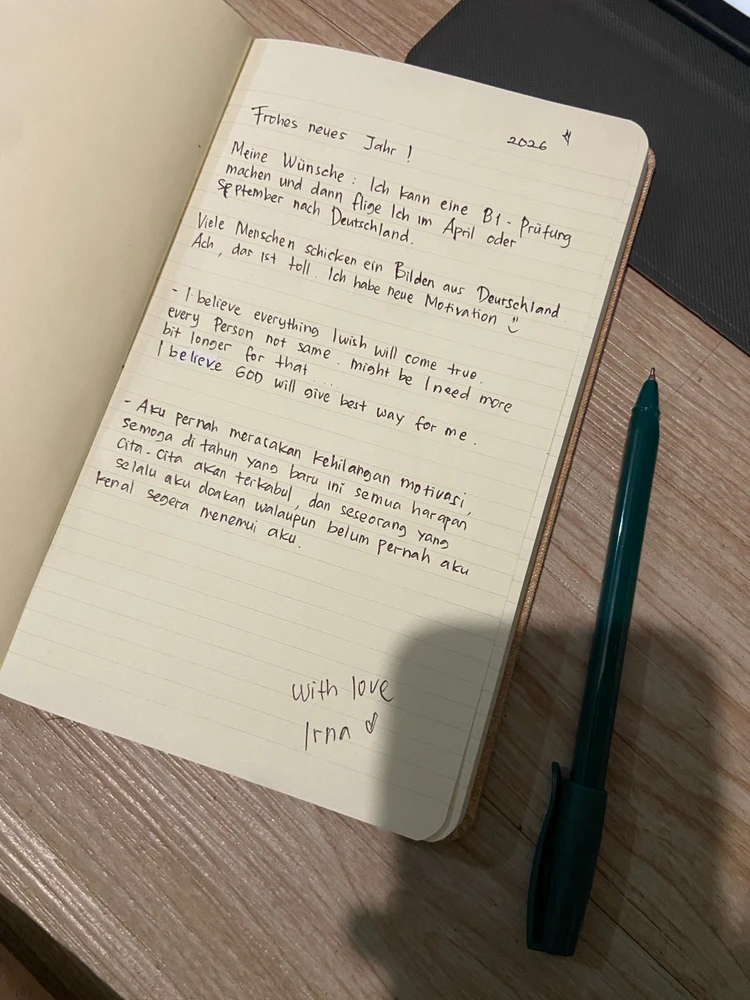 Frohes neues Jahr ! 2026
Meine Wünsche : Ich kann eine B1 - Prüfung
machen und dann flige Ich im April oder
September nach Deutschland.
Viele Menschen schicken ein Bilden aus Deutschland.
Ach, das ist toll. Ich habe neue Motivation
- I believe everything I wish will come true.
every Person not same. might be I need more
bit longer for that ....
I believe GOD will give best way for me.
- Aku pernah merasakan kehilangan motivasi,
semoga di tahun yang baru ini semua harapan
cita-cita akan terkabul, dan seseorang yang
selalu aku doakan walaupun belum pernah aku
kenal segera menemui aku.
with love
Irna